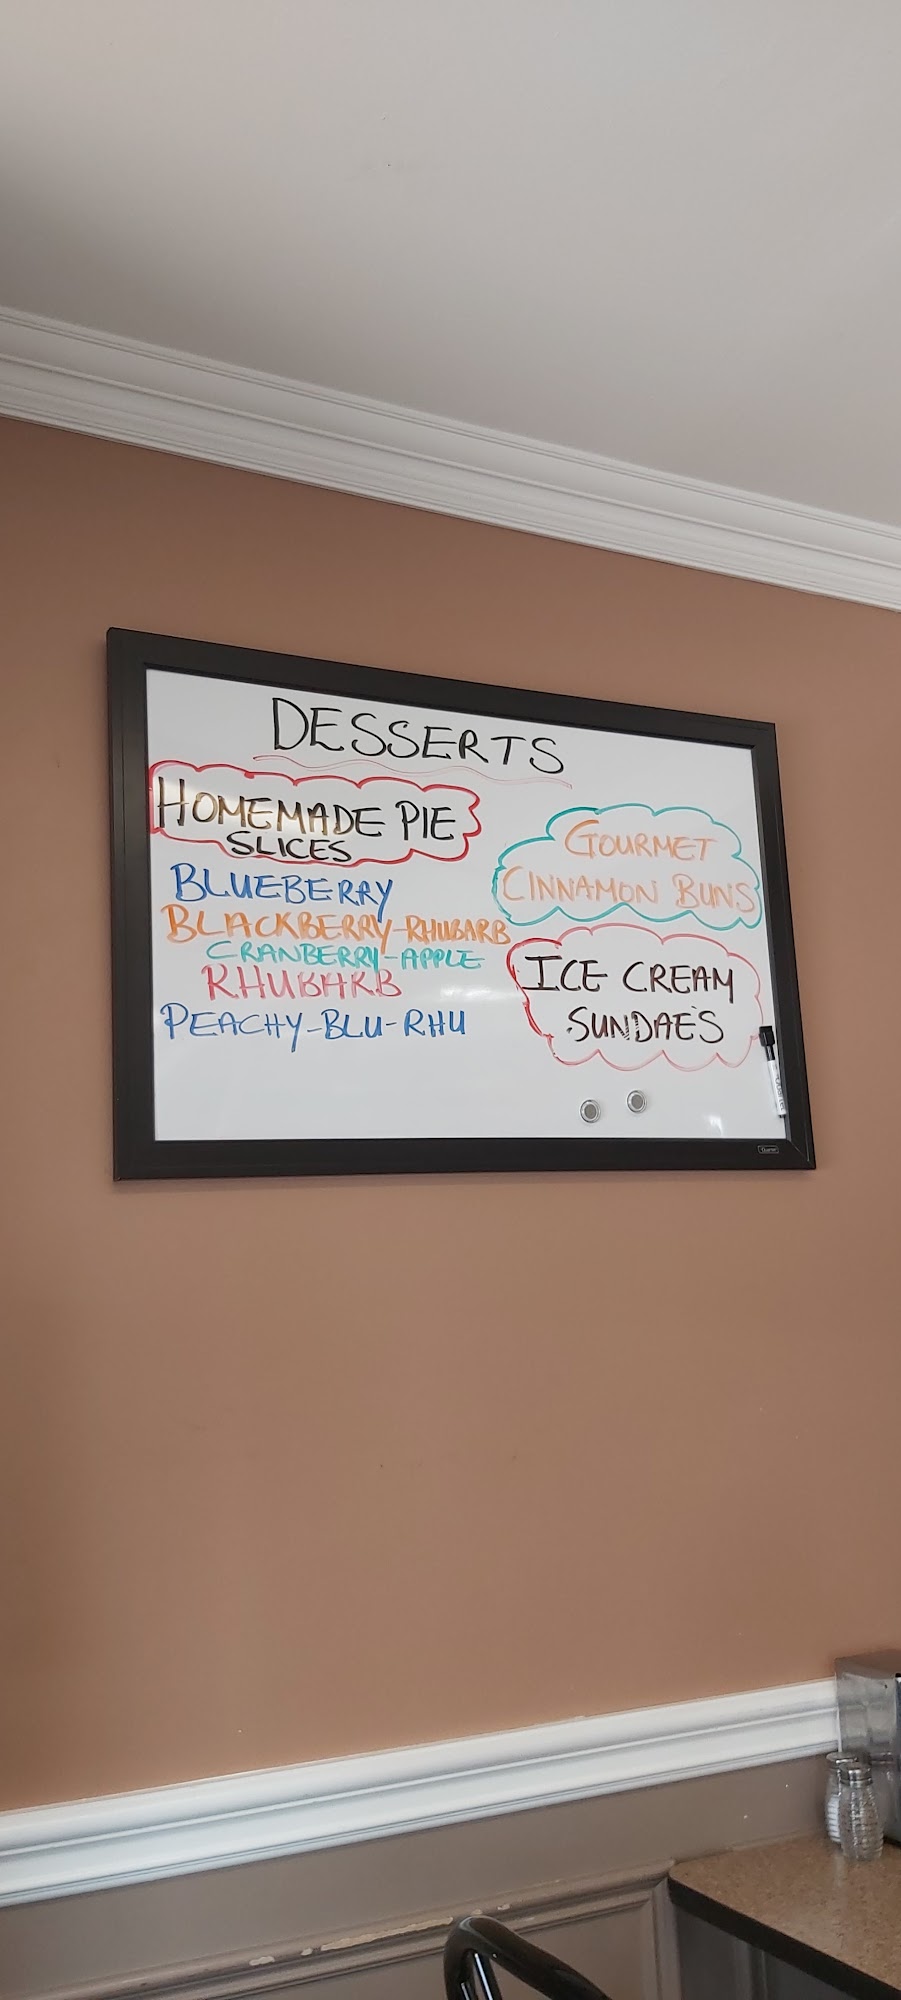 DESSERTS
HOMEMADE PIE
SLICES
BLUEBERRY
BLACKBERRY-RHUBARB
CRANBERRY-APPLE
RHUBARB
PEACHY-BLU-RHU
GOURMET
CINNAMON BUNS
ICE CREAM
SUNDAES